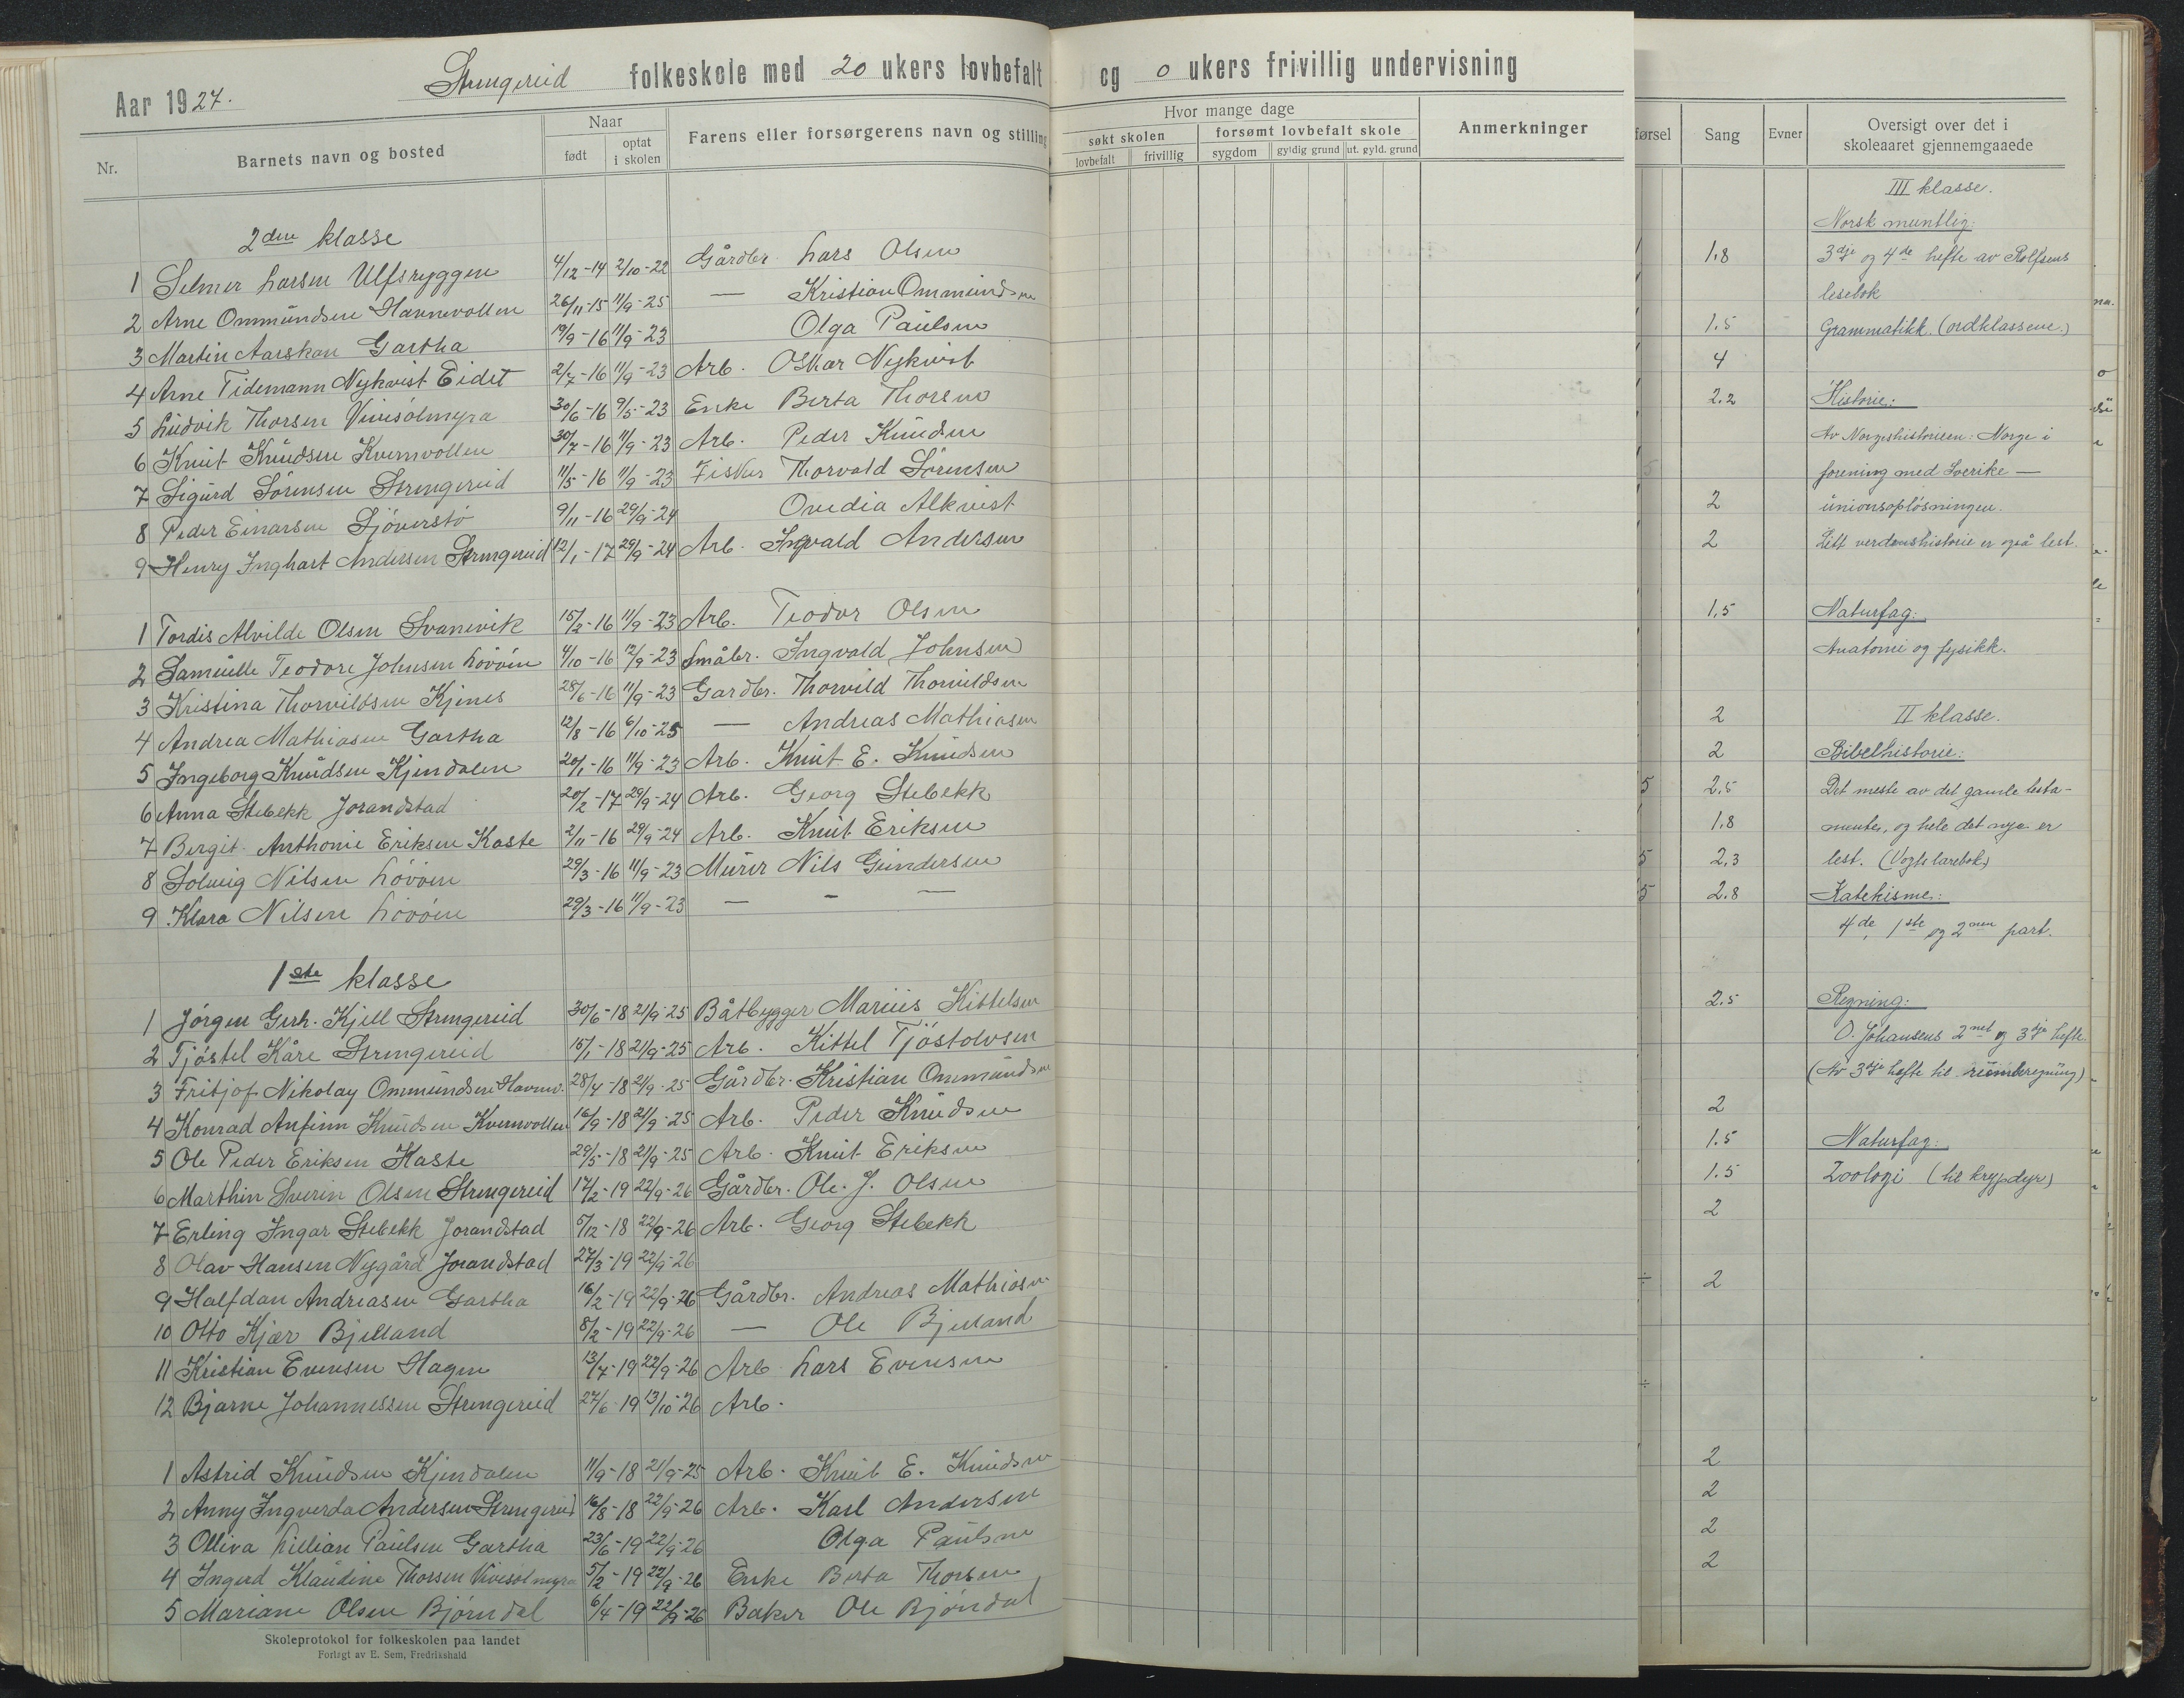 Aar 1927. Strengereid folkeskole med 20 ukers lovbefalt og 0 ukers frivillig undervisning
Nr. Barnets navn og bosted Naar født optat i skolen Farens eller forsørgerens navn og stilling
Hvor mange dage
søkt skolen forsømt lovbefalt skole Anmerkninger
lovbefalt frivillig sygdom gyldig grund ut. gyld. grund
førsel Sang Evner Oversigt over det i skoleaaret gjennemgaaede
2den klasse
1 Selmer Larsen Ulfsryggen 4/12-14 2/10-22 Gårdbr. Lars Olsen
2 Arne Ommundsen Havnevollen 26/11-15 11/9-25 — Kristian Ommundsen
3 Martin Aarskau Gartha 19/9-16 11/9-23 Olga Paulsen
4 Arne Tidemann Nykvist Eidet 2/7-16 11/9-23 Arb. Oskar Nykvist
5 Ludvik Thorsen Vivesölmyra 30/6-16 9/5-23 Enke Berta Thorsen
6 Knut Knudsen Kvernvollen 30/7-16 11/9-23 Arb. Peder Knudsen
7 Sigurd Sörensen Strengereid 11/5-16 11/9-23 Fisker Thorvald Sörensen
8 Peder Einarsen Sjöverstö 9/11-16 29/9-24 Ovedia Alkvist
9 Henry Inghart Andersen Strengereid 12/1-17 29/9-24 Arb. Ingvald Andersen
1 Tordis Alvilde Olsen Svanevik 15/2-16 11/9-23 Arb. Teodor Olsen
2 Samuelle Teodore Johnsen Lövöen 4/10-16 12/9-23 Småbr. Ingvald Johnsen
3 Kristina Thorvildsen Kjenes 28/6-16 11/9-23 Gardbr. Thorvild Thorvildsen
4 Andrea Mathiasen Gartha 12/8-16 6/10-25 — Andreas Mathiasen
5 Ingeborg Knudsen Kjendalen 20/1-16 11/9-23 Arb. Knut E. Knudsen
6 Anna Stebekk Jorandstad 20/2-17 29/9-24 Arb. Georg Stebekk
7 Bergit Anthonie Eriksen Kaste 2/11-16 29/9-24 Arb. Knut Eriksen
8 Solveig Nilsen Lövöen 29/3-16 11/9-23 Murer Nils Gundersen
9 Klara Nilsen Lövöen 29/3-16 11/9-23 — - —
1ste klasse
1 Jörgen Gerh. Kjell Strengereid 30/6-18 21/9-25 Båtbygger Marius Kittelsen
2 Tjöstel Kåre Strengereid 15/1-18 21/9-25 Arb. Kittel Tjöstolvsen
3 Fritjof Nikolay Ommundsen Havnev. 28/4-18 21/9-25 Gårdbr. Kristian Ommundsen
4 Konrad Anfinn Knudsen Kvernvollen 16/9-18 21/9-25 Arb. Peder Knudsen
5 Ole Peder Eriksen Kaste 29/5-18 21/9-25 Arb. Knut Eriksen
6 Marthin Sverin Olsen Strengereid 17/2-19 22/9-26 Gårdbr. Ole. J. Olsen
7 Erling Ingar Stebekk Jorandstad 5/12-18 22/9-26 Arb. Georg Stebekk
8 Olav Hansen Nygård Jorandstad 27/3-19 22/9-26
9 Halfdan Andreasen Gartha 16/2-19 22/9-26 Gårdbr. Andreas Mathiasen
10 Otto Kjær Bjelland 8/2-19 22/9-26 — Ole Bjelland
11 Kristian Evensen Hagen 13/7-19 22/9-26 Arb. Lars Evensen
12 Bjarne Johannessen Strengereid 27/6-19 13/10-26 Arb.
1 Astrid Knudsen Kjendalen 11/9-18 21/9-25 Arb. Knut E. Knudsen
2 Anny Ingverda Andersen Strengereid 16/8-18 22/9-26 Arb. Karl Andersen
3 Olliva Lillian Paulsen Gartha 23/6-19 22/9-26 Olga Paulsen
4 Ingerd Klaudine Thorsen Vivesölmyra 5/2-19 22/9-26 Enke Berta Thorsen
5 Mariane Olsen Bjørndal 6/4-19 22/9-26 Baker Ole Bjöndal
Skoleprotokol for folkeskolen paa landet
Forlagt av E. Sem, Fredrikshald
III klasse.
Norsk muntlig:
1.8 3dje og 4de hefte av Rolfsens
lesebok
1.5 Grammatikk. (ordklassene.)
4
2.2 Historie:
Av Norgeshistorien: Norge i
forening med Sverike —
2 unionsopløsningen.
2 Litt verdenshistorie er også lest.
1.5 Naturfag:
Anatomi og fysikk.
2 II klasse.
2 Bibelhistorie:
5 2.5 Det meste av det gamle testa-
1.8 mente, og hele det nye er
5 2.3 lest. (Vogts lærebok)
5 2.8 Katekisme:
4de, 1ste og 2nen part.
2.5 Regning:
O. Johansens 2net og 3dje hefte.
(Av 3dje hefte til rumberegning)
2
1.5 Naturfag:
1.5 Zoologi (til krypdyr)
2
÷ 2
÷
2
2
2
2